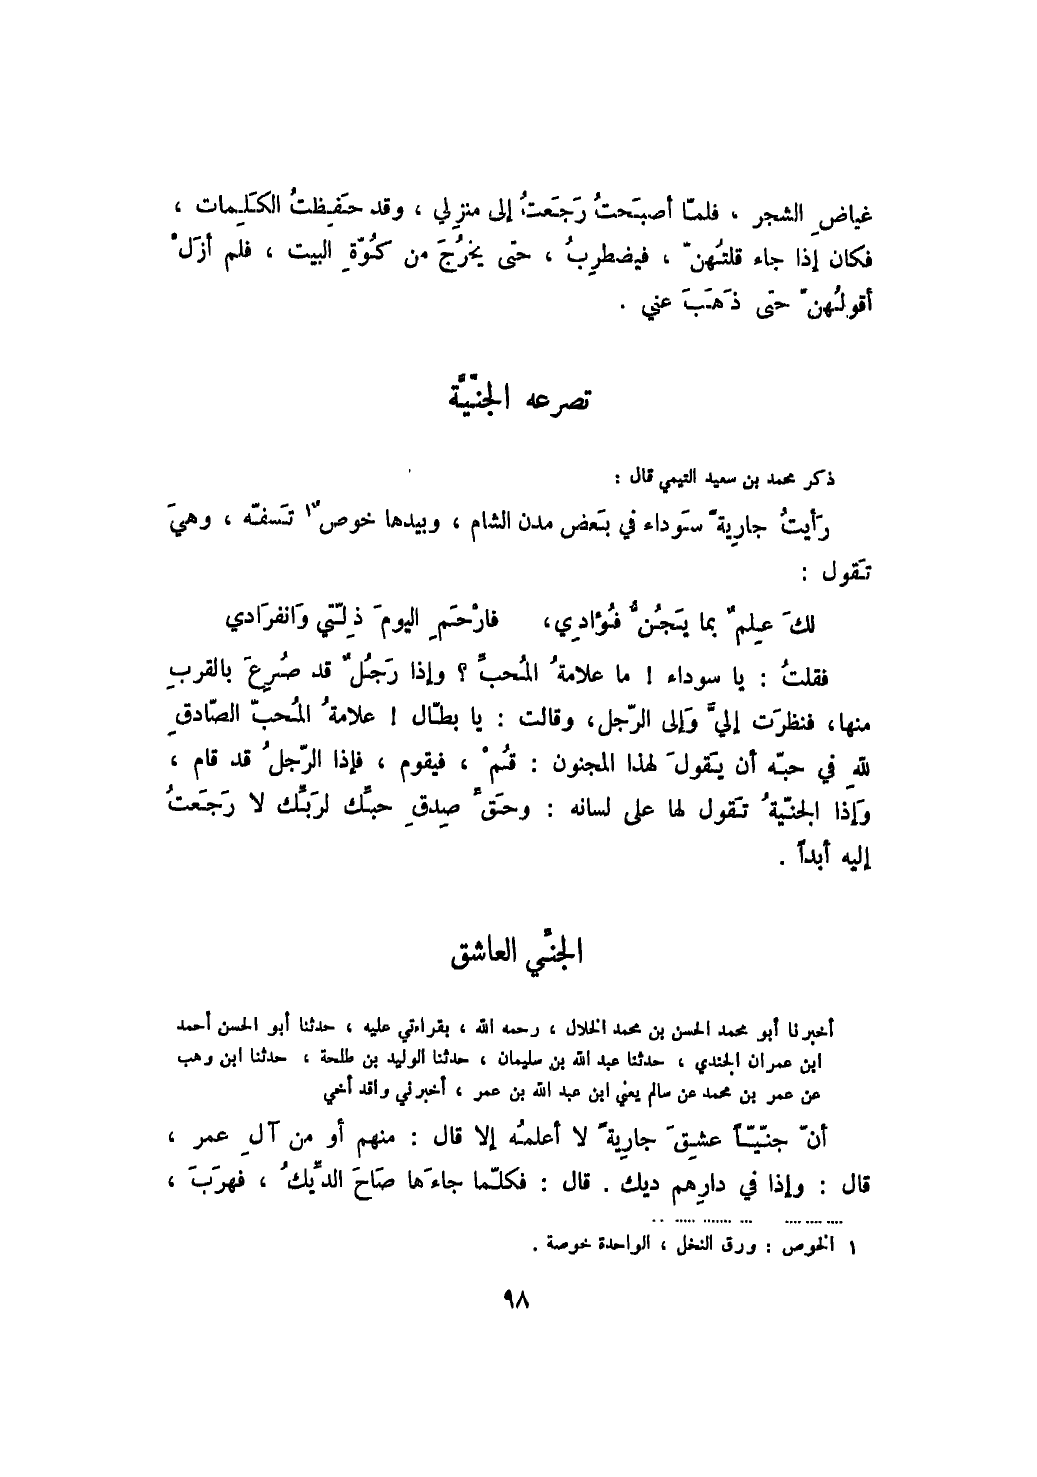 غياضِ الشجر ، فلمّا أصبَحتُ رَجَعتُ إلى منزِلي ، وقد حَفِظتُ الكَلِمات ،
فكان إذا جاء قلتُهنّ ، فيضطرِبُ ، حتّى يخرُجَ من كُوّةِ البيت ، فلم أزَلْ
أقولُهنّ حتّى ذَهَبَ عني .
تصرعه الجنّيَّة
ذكر محمد بن سعيد التيمي قال :
رَأيتُ جارِيةً سَوداء في بَعض مدن الشام ، وبيدها خوصٌ١ تَسفّه ، وهيَ
تَقول :
لكَ عِلمٌ بما يَجُنُّ فُؤادِي، فارْحَمِ اليومَ ذِلّتي وَانفرَادي
فقلتُ : يا سوداء ! ما علامةُ المُحبِّ ؟ وإذا رَجُلٌ قد صُرِعَ بالقربِ
منها، فنظرَت إليَّ وَإلى الرّجل، وقالت : يا بطّال ! علامةُ المُحبّ الصّادقِ
للهِ في حبّه أن يَقولَ لهذا المجنون : قُمْ ، فيقوم ، فإذا الرّجلُ قد قام ،
وَإذا الجنّيةُ تَقول لها على لسانه : وحَقِّ صِدقِ حبِّك لرَبِّك لا رَجَعتُ
إليه أبداً .
الجنّي العاشق
أخبرنا أبو محمد الحسن بن محمد الخلال ، رحمه الله ، بقراءتي عليه ، حدثنا أبو الحسن أحمد
ابن عمران الجندي ، حدثنا عبد الله بن سليمان ، حدثنا الوليد بن طلحة ، حدثنا ابن وهب
عن عمر بن محمد عن سالم يعني ابن عبد الله بن عمر ، أخبرني واقد أخي
أنّ جنّيّاً عشِقَ جارِيةً لا أعلمُه إلا قال : منهم أو من آلِ عمر ،
قال : وإذا في دارِهم ديك . قال : فكلّما جاءَها صَاحَ الدِّيكُ ، فهرَبَ ،
١ الخوص : ورق النخل ، الواحدة خوصة .
٩٨